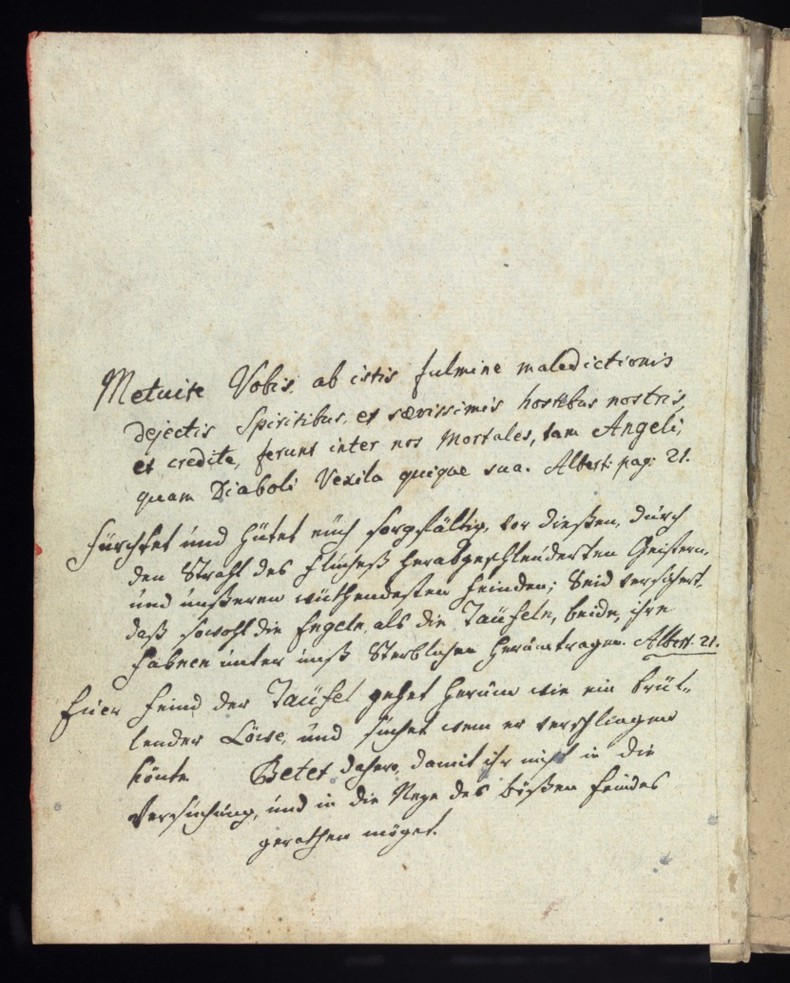 Metuite Vobis, ab istis fulmine maledictionis
dejectis Spiritibus, et sævissimis hostibus nostris,
et credite, ferunt inter nos Mortales, tam Angeli,
quam Diaboli Vexila quique sua. Albert: pag: 21.
Fürchtet und Hütet euch sorgfältig, vor dießen, durch
den Strahl des Flucheß herabgeschleuderten Geistern,
und unßeren wüthendesten Feinden; Seid versichert,
daß sowohl die Engeln, als die Täufeln, beide, ihre
Fahnen unter unß Sterblichen herumtragen. Albert. 21.
Euer Feind der Täufel gehet herum wie ein brül-
lender Löwe, und suchet wem er verschlingen
könte Betet dahero, damit ihr nicht in die
Versuchung, und in die Neze des bößen Feindes
gerathen möget.